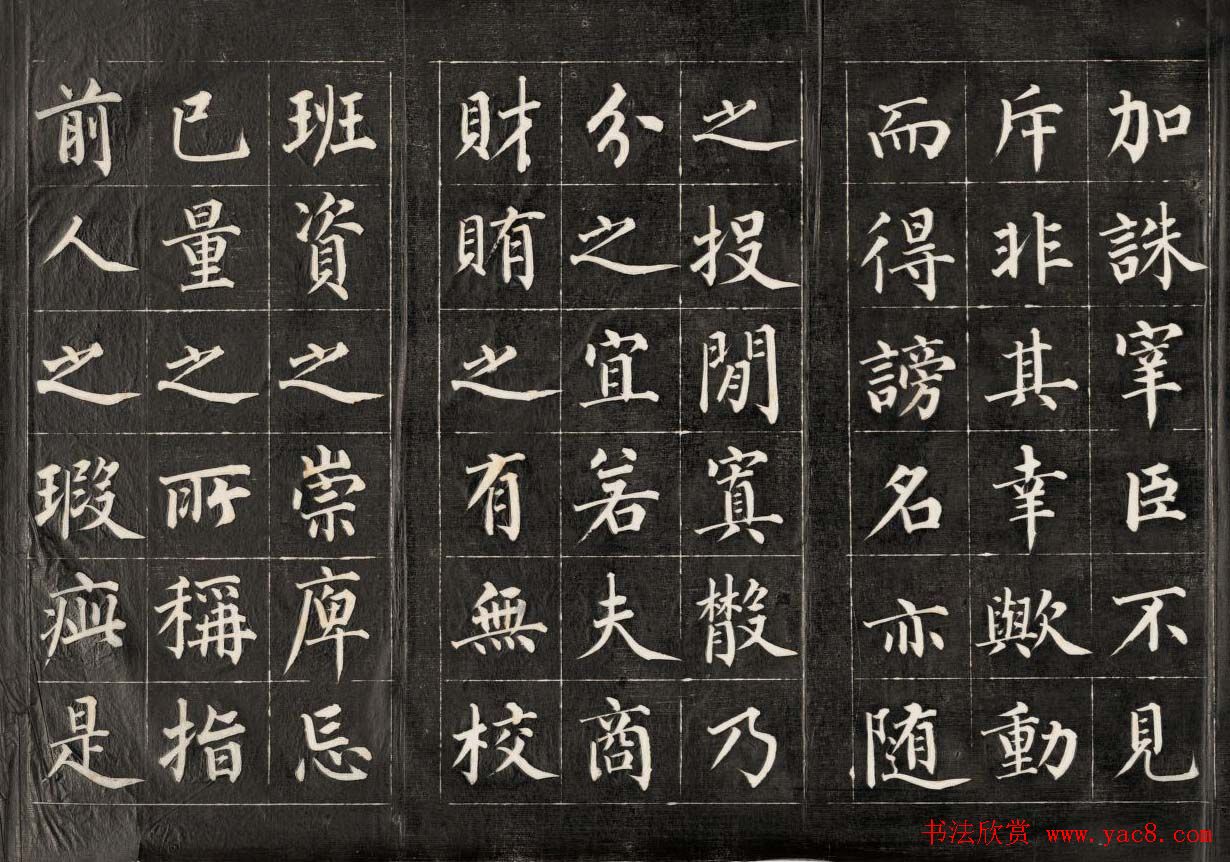 加誅宰臣不見
斥非其幸歟動
而得謗名亦随
之投閒寘散乃
分之宜若夫商
財賄之有無校
班資之崇庳忘
已量之所稱指
前人之瑕疵是
书法欣赏 www.yac8.com